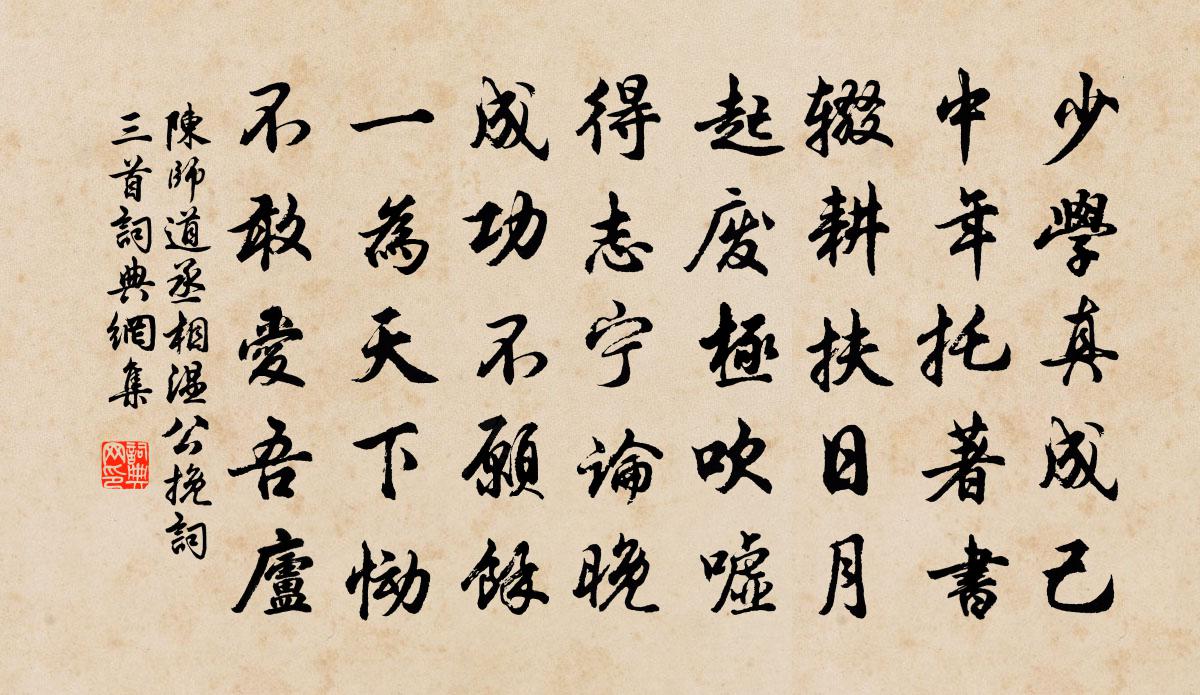 少學真成己
中年托著書
辍耕扶日月
起废極吹嘘
得志宁論晚
成功不願餘
一為天下慟
不敢愛吾廬
陳師道丞相温公挽詞
三首詞典網集
詞典网印